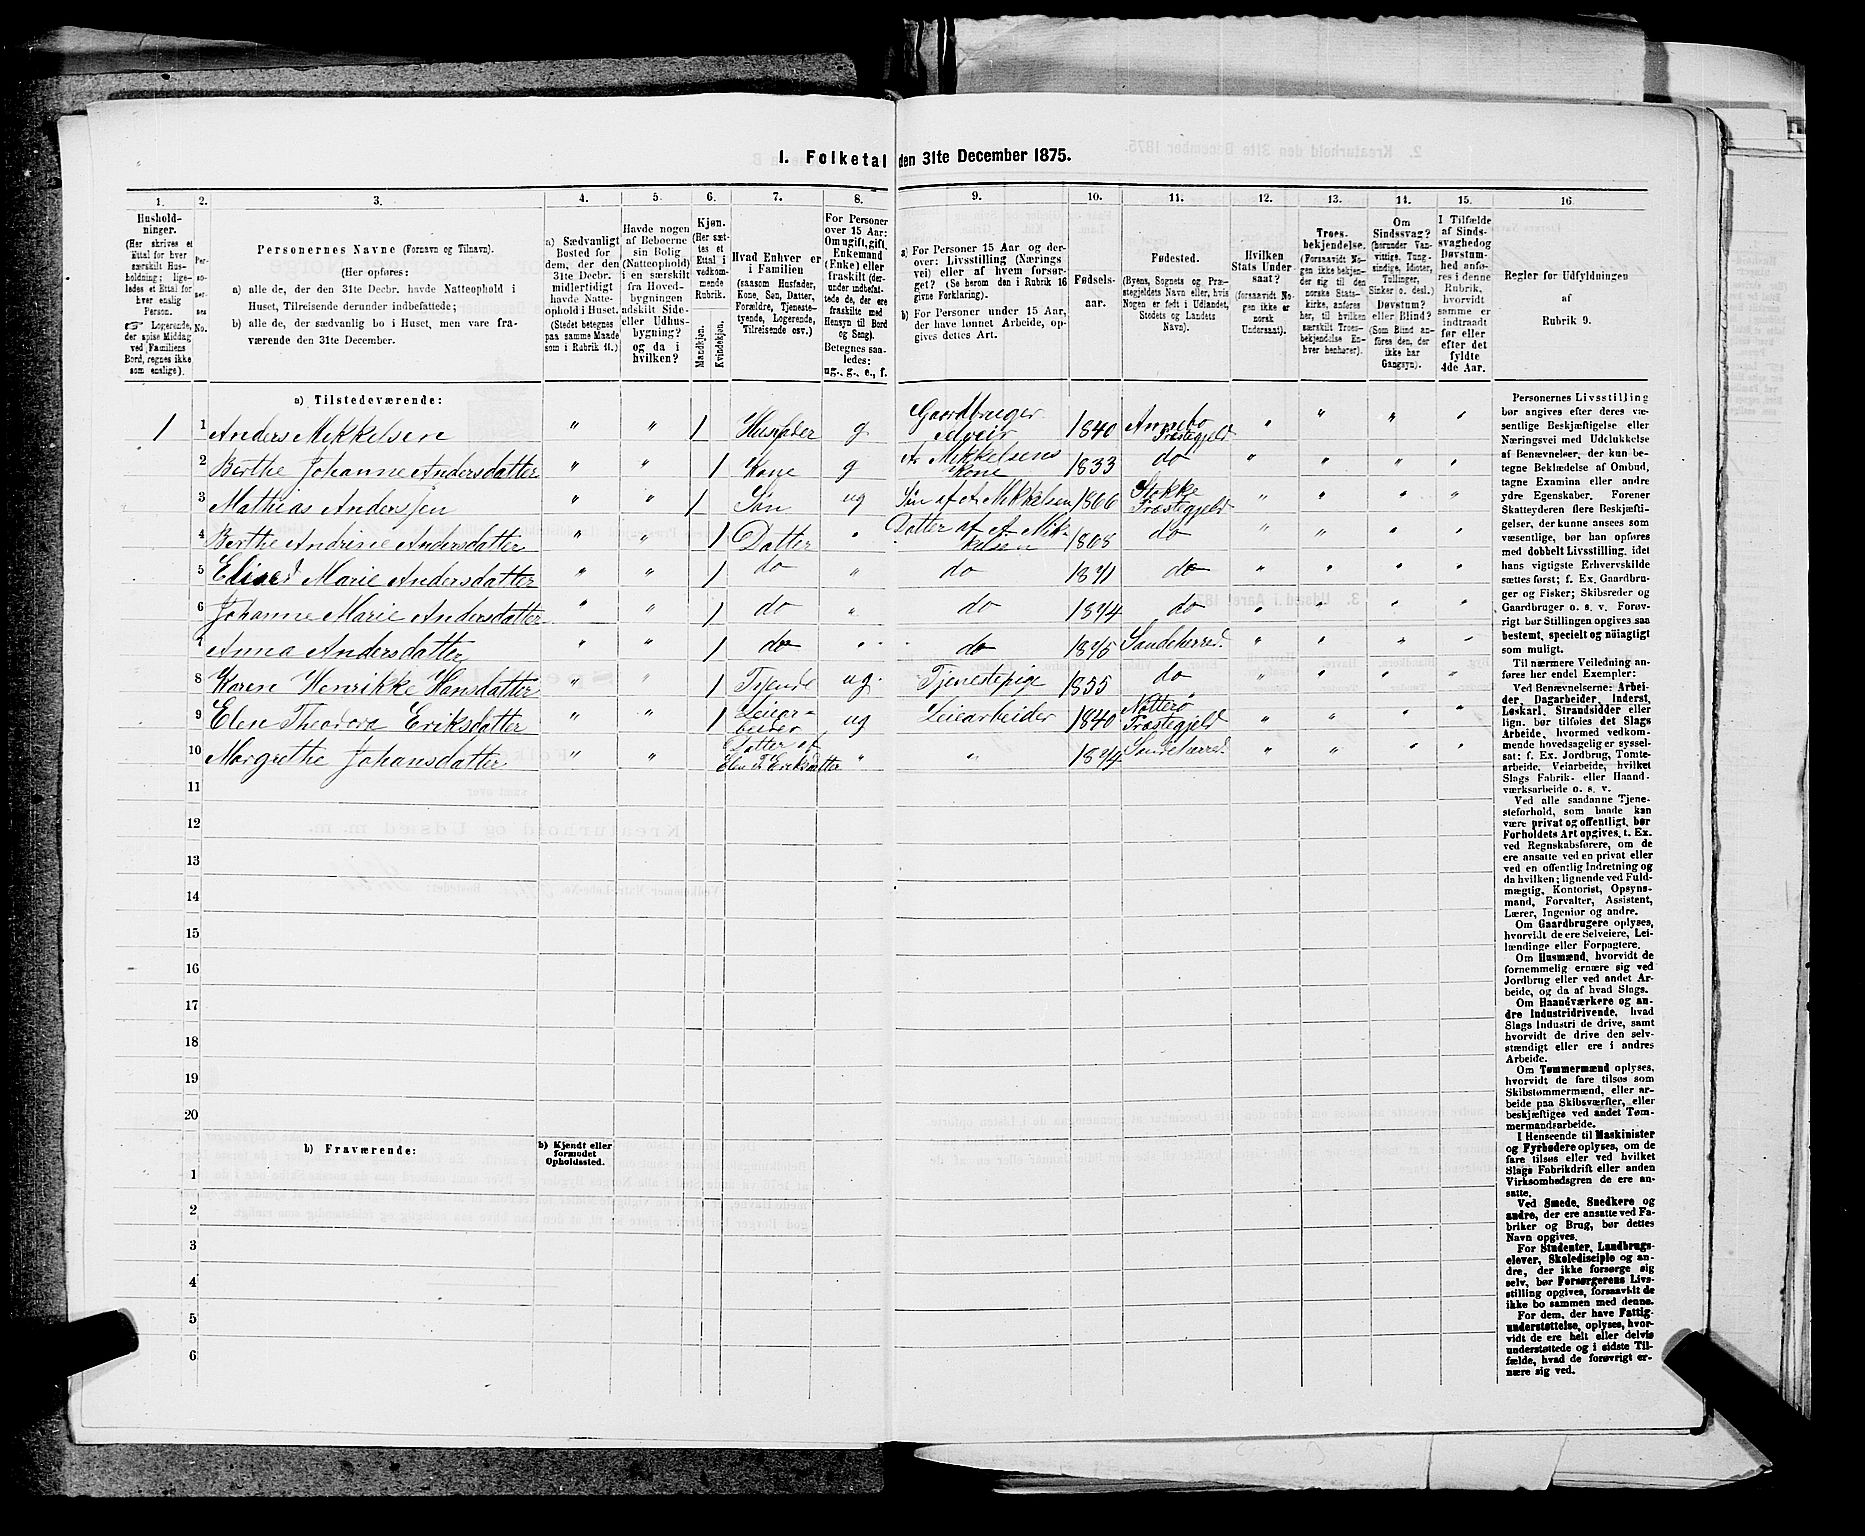 1. Folketal den 31te December 1875.
1. 2. 3. 4. 5. 6. 7. 8. 9. 10. 11. 12. 13. 14. 15. 16
Hushold-
ninger.
(Her skrives et
Ettal for hver
særskilt Hus-
holdning; lige-
ledes et Ettal for
hver enslig
Person.
☞ Logerende,
der spise Middag
ved Familiens
Bord, regnes ikke
som enslige).
Per-
so-
ner-
nes
No.
Personernes Navne (Fornavn og Tilnavn).
(Her opføres:
a) alle de, der den 31te Decbr. havde Natteophold i
Huset, Tilreisende derunder indbefattede;
b) alle de, der sædvanlig bo i Huset, men vare fra-
værende den 31te December.
a) Sædvanligt
Bosted for
dem, der den
31te Decbr.
midlertidigt
havde Natte-
ophold i Huset.
(Stedet betegnes
paa samme Maade
som i Rubrik 11.)
Havde nogen
af Beboerne
sin Bolig
(Natteophold)
i en særskilt
fra Hoved-
bygningen
adskilt Side-
eller Udhus-
bygning?
og da i
hvilken?
Kjøn.
(Her sæt-
tes et
Ettal i
vedkom-
mende
Rubrik.
Mandkjøn.
Kvindekjøn.
Hvad Enhver er
i Familien
(saasom Husfader,
Kone, Søn, Datter,
Forældre, Tjeneste-
tyende, Logerende,
Tilreisende osv.)
For Personer
over 15 Aar:
Om ugift, gift,
Enkemand
(Enke) eller
fraskilt (der-
under indbefat-
tede de, der ere
fraskilte med
Hensyn til Bord
og Seng).
Betegnes saa-
ledes:
ug., g., e., f.
a) For Personer 15 Aar og der-
over: Livsstilling (Nærings
vei) eller af hvem forsør-
get? (Se herom den i Rubrik 16
givne Forklaring).
b) For Personer under 15 Aar,
der have lønnet Arbeide, op-
gives dettes Art.
Fødsels-
aar.
Fødested.
(Byens, Sognets og Præ-
stegjeldets Navn eller, hvis
Nogen er født i Udlandet,
Stedets og Landets
Navn).
Hvilken
Stats Under
saat?
(forsaavidt No-
gen ikke er
norsk
Undersaat).
Troes-
bekjendelse.
(Forsaavidt No-
gen ikke bekjen-
der sig til den
norske Stats-
kirke, anføres
her, til hvilken
særskilt Troes-
bekjendelse En-
hver henhører).
Om
Sindssvag?
(herunder Van-
vittige, Tung-
sindige, Idioter,
Tullinger,
Sinker o. desl.)
Døvstum?
eller Blind?
(Som Blind an-
føres den, der
ikke har
Gangsyn).
I Tilfælde
af Sinds-
svaghed og
Døvstum-
hed anfø-
res i denne
Rubrik,
hvorvidt
samme er
indtraadt
før eller
efter det
fyldte
4de Aar.
Regler for Udfyldningen
af
Rubrik 9.
a) Tilstedeværende:
1 1 Anders Mikkelsen " " 1 Husfader g Gaardbruger selveir 1840 Annebo Præstegjeld " " " "
2 Berthe Johanne Andersdatter " " 1 Kone g A. Mikkelsens Kone 1833 do " " " "
3 Mathias Andersen " " 1 Søn ug Søn af A. Mikkelsen 1866 Stokke Præstegjeld " " " "
4 Berthe Andrine Andersdatter " " 1 Datter " Datter af A Mik-kelsen 1868 do " " " "
5 Elised Marie Andersdatter " " 1 do " do 1871 do " " " "
6 Johanne Marie Andersdatter " " 1 do " do 1874 do " " " "
7 Anna Andersdatter " " 1 do " do 1875 Sandeherred. " " " "
8 Karen Henrikke Hansdatter " " 1 Tjende ug. Tjenestepige 1855 do " " " "
9 Elen Theodora Eriksdatter " " 1 Leiar-beider ug Leiarbeider 1840 Nøtterø Præstegjeld " " " "
10 Margrethe Johansdatter " " 1 Datter af Elen T. Eriksdatter " " 1874 Sandeherred. " " " "
11
12
13
14
15
16
17
18
19
20
b) Fraværende:
b) Kjendt eller
formodet
Opholdssted.
1
2
3
4
5
6
Personernes Livsstilling
bør angives efter deres væ-
sentlige Beskjæftigelse eller
Næringsvei med Udelukkelse
af Benævnelser, der kun be-
tegne Beklædelse af Ombud,
tagne Examina eller andre
ydre Egenskaber. Forener
Skatteyderen flere Beskjæfti-
gelser, der kunne ansees som
væsentlige, bør han opføres
med dobbelt Livsstilling, idet
hans vigtigste Erhvervskilde
sættes først; f. Ex. Gaardbru-
ger og Fisker; Skibsreder og
Gaardbruger o. s. v. Forøv-
rigt bør Stillingen opgives saa
bestemt, specielt og nøiagtigt
som muligt.
Til nærmere Veiledning an-
føres her endel Exempler:
Ved Benævnelserne: Arbei-
der, Dagarbeider, Inderst,
Løskarl, Strandsidder eller
lign. bør tilføies det Slags
Arbeide, hvormed vedkom-
mende hovedsagelig er syssel-
sat; f. Ex. Jordbrug, Tomte-
arbeide, Veiarbeide, hvilket
Slags Fabrik- eller Haand-
værksarbeide o. s. v.
Ved alle saadanne Tjene-
steforhold, som baade kan
være privat og offentligt, bør
Forholdets Art opgives, t. Ex.
ved Regnskabsførere, om de
ere ansatte ved en privat eller
ved en offentlig Indretning og
da hvilken; lignende ved Fuld-
mægtig, Kontorist, Opsyns-
mand, Forvalter, Assistent,
Lærer, Ingeniør og andre.
Om Gaardbrugere oplyses,
hvorvidt de ere Selveiere, Lei-
lændinge eller Forpagtere.
Om Husmænd, hvorvidt de
fornemmelig ernære sig ved
Jordbrug eller ved andet Ar-
beide, og da af hvad Slags.
Om Haandværkere og an-
dre Industridrivende, hvad
Slags Industri de drive, samt
hvorvidt de drive den selv-
stændigt eller ere i andres
Arbeide.
Om Tømmermænd oplyses,
hvorvidt de fare tilsøs som
Skibstømmermænd, eller ar-
beide paa Skibsværfter, eller
beskjæftiges ved andet Tøm-
mermandsarbeide.
I Henseende til Maskinister
og Fyrbødere oplyses, om de
fare tilsøs eller ved hvilket
Slags Fabrikdrift eller anden
Virksomhedsgren de ere an-
satte.
Ved Smede, Snedkere og
andre, der ere ansatte ved Fa-
briker og Brug, bør dettes
Navn opgives.
For Studenter, Landbrugs-
elever, Skoledisciple og an-
dre, der ikke forsørge sig
selv, bør Forsørgerens Livs-
stilling opgives, forsaavidt de
ikke bo sammen med denne.
For dem, der have Fattig-
understøttelse, oplyses, hvor-
vidt de ere helt eller delvis
understøttede og i sidste Til-
fælde, hvad de forøvrigt er-
nære sig ved.